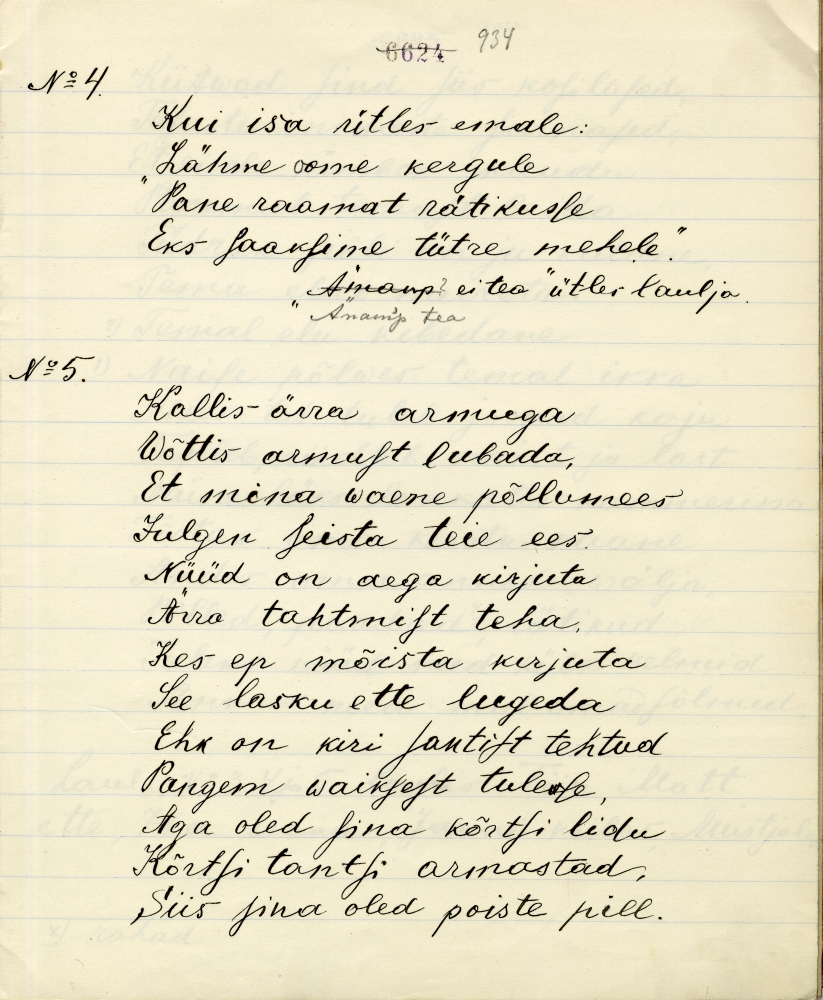 6624 934
No 4.
Kui isa ütles emale:
„Lähme oome kergule
Pane raamat rätikusse
Eks saaksime tütre mehele."
„Änamp? ei tea" ütles laulja.
Änamp tea
No 5.
Kallis ärra armuga
Wõttis armust lubada,
Et mina waene põllumees
Julgen seista teie ees.
Nüüd on aega kirjuta
Ärra tahtmist teha,
Kes ep mõista kirjuta
See lasku ette lugeda
Ehk on kiri santist tehtud
Pangem waiksest tulesse,
Aga oled sina kõrtsi lidu
Kõrtsi tantsi armastad,
Siis sina oled poiste pill.